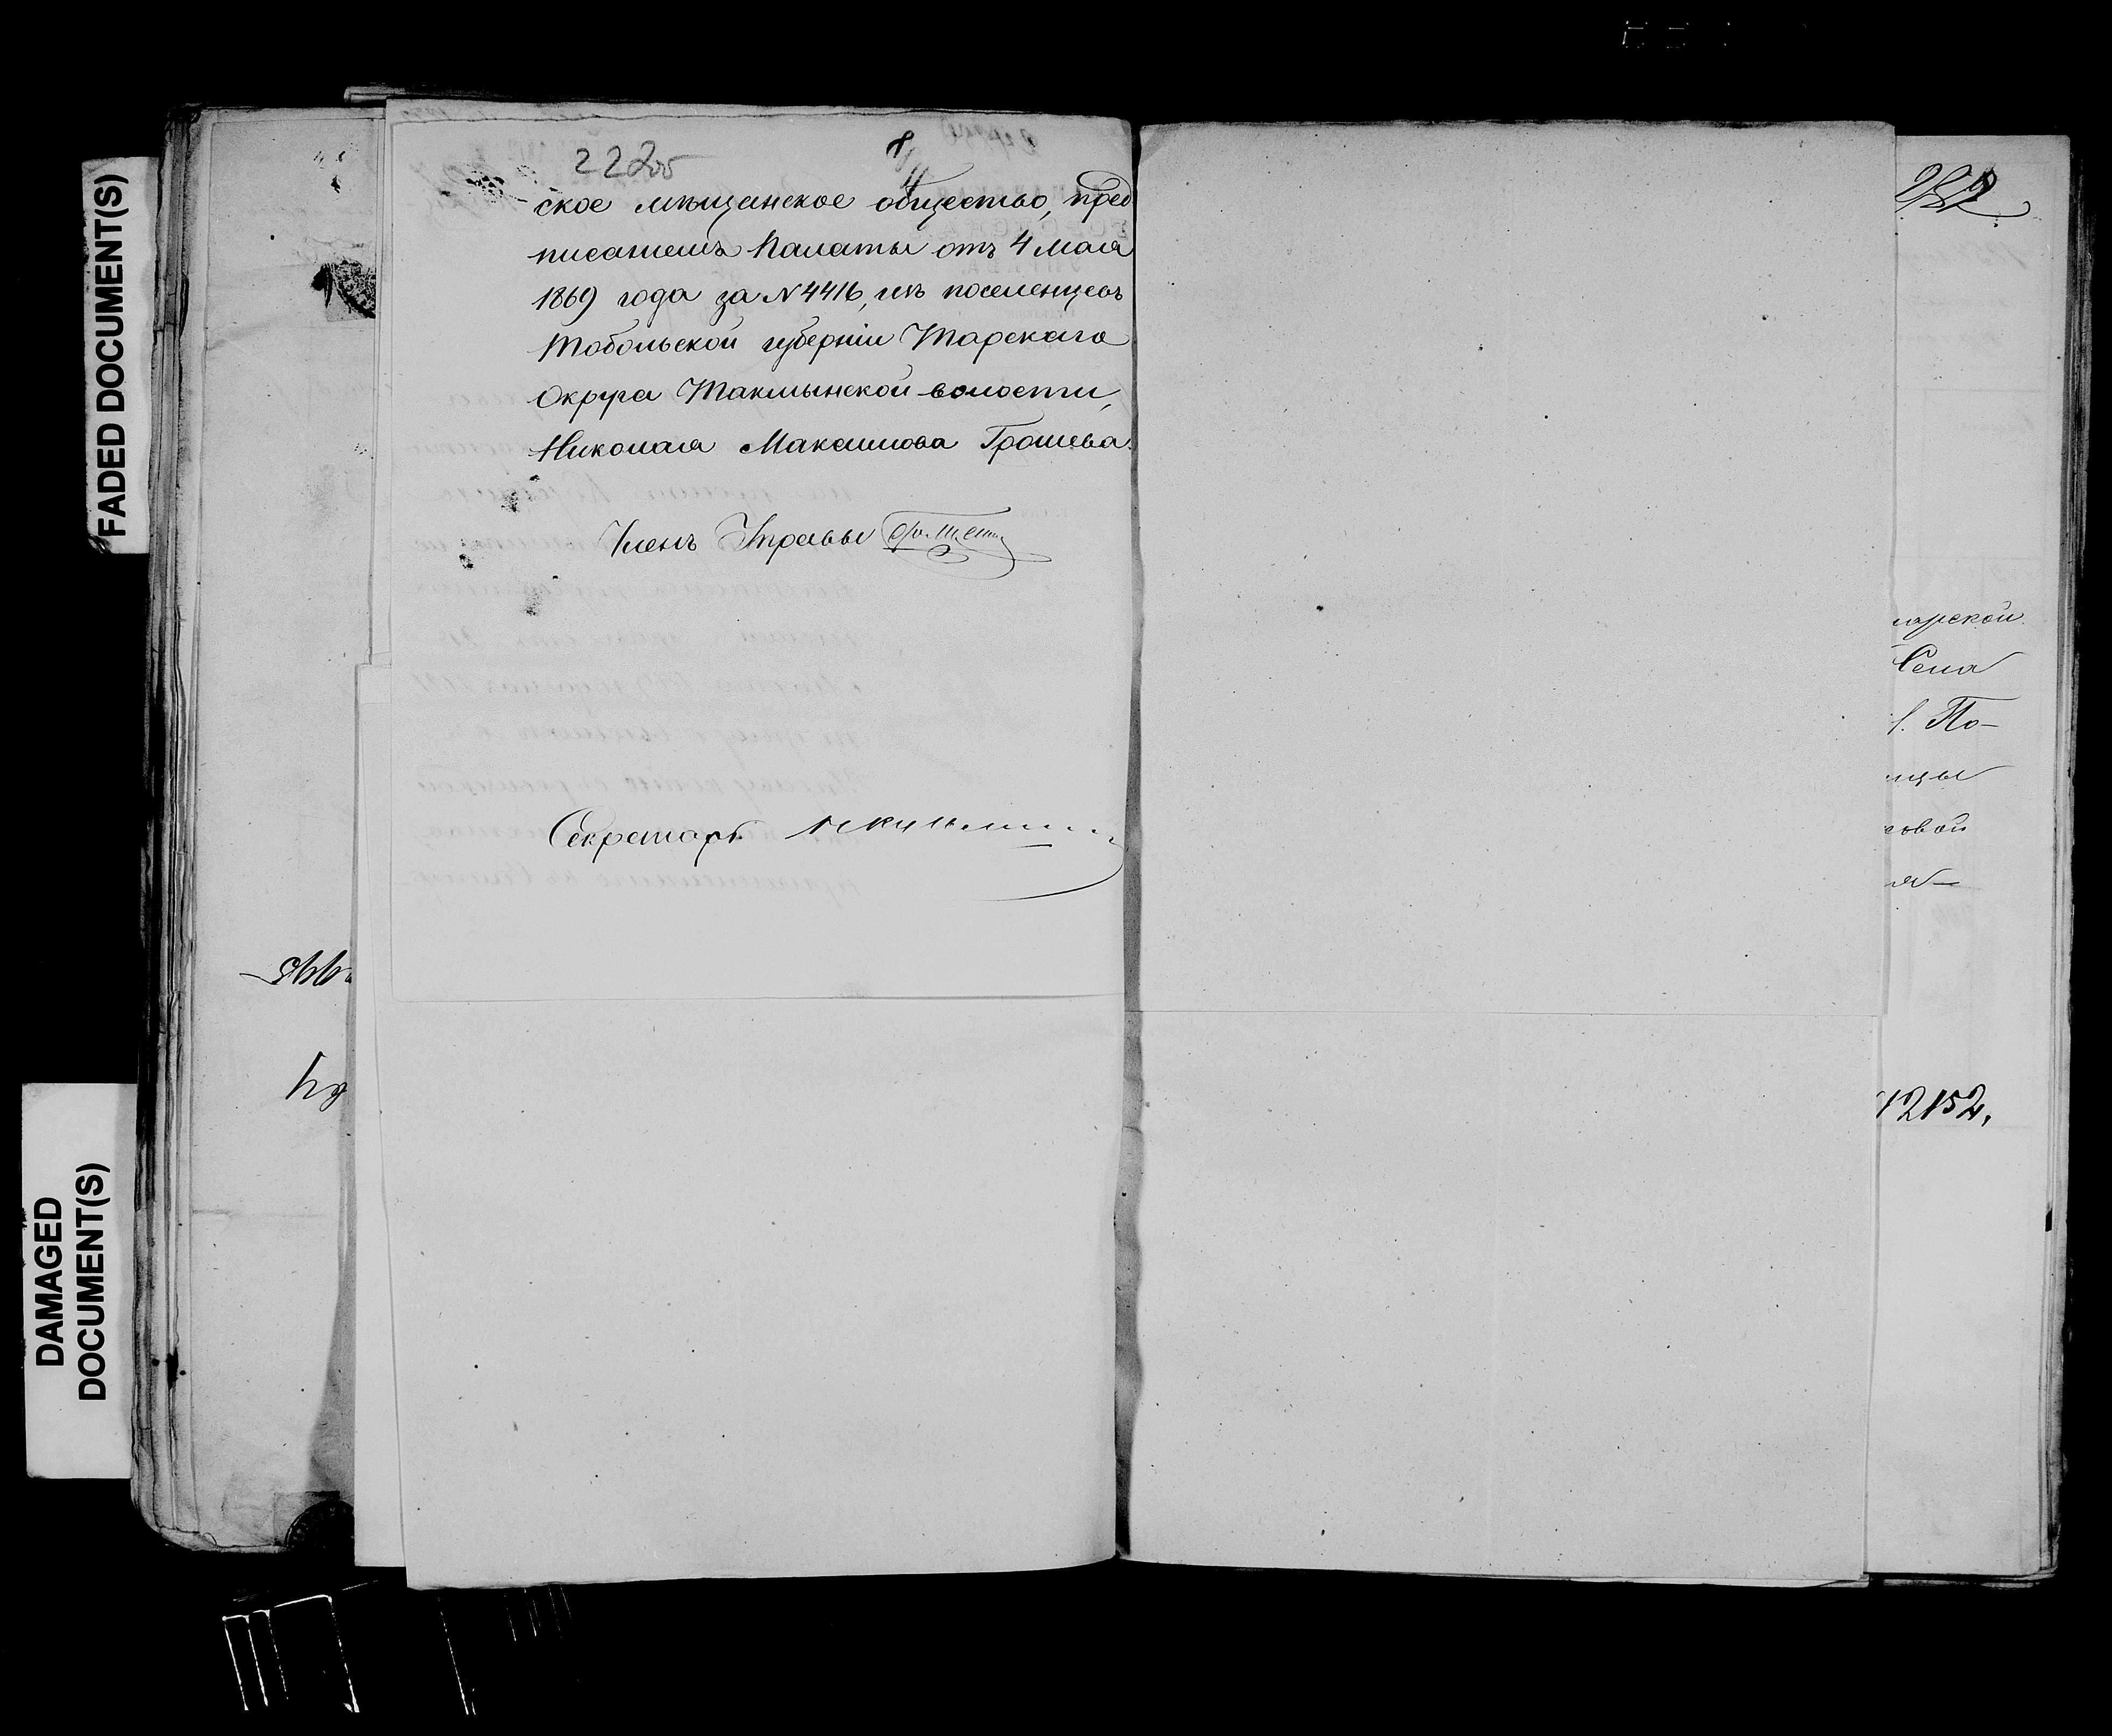 FADED DOCUMENT(S)
DAMAGED
DOCUMENT(S)
222об
8
ское мѣщанское общество, пред
писанiемъ Палаты отъ 4 Мая
1869 года за N 4416, изъ поселенцевъ
Тобольской губернiи Тарскаго
Округа Такмынской волости,
Николая Максимова Грошева.
Членъ Управы
Секретарь
Села
По-
ицы
совой
12152,